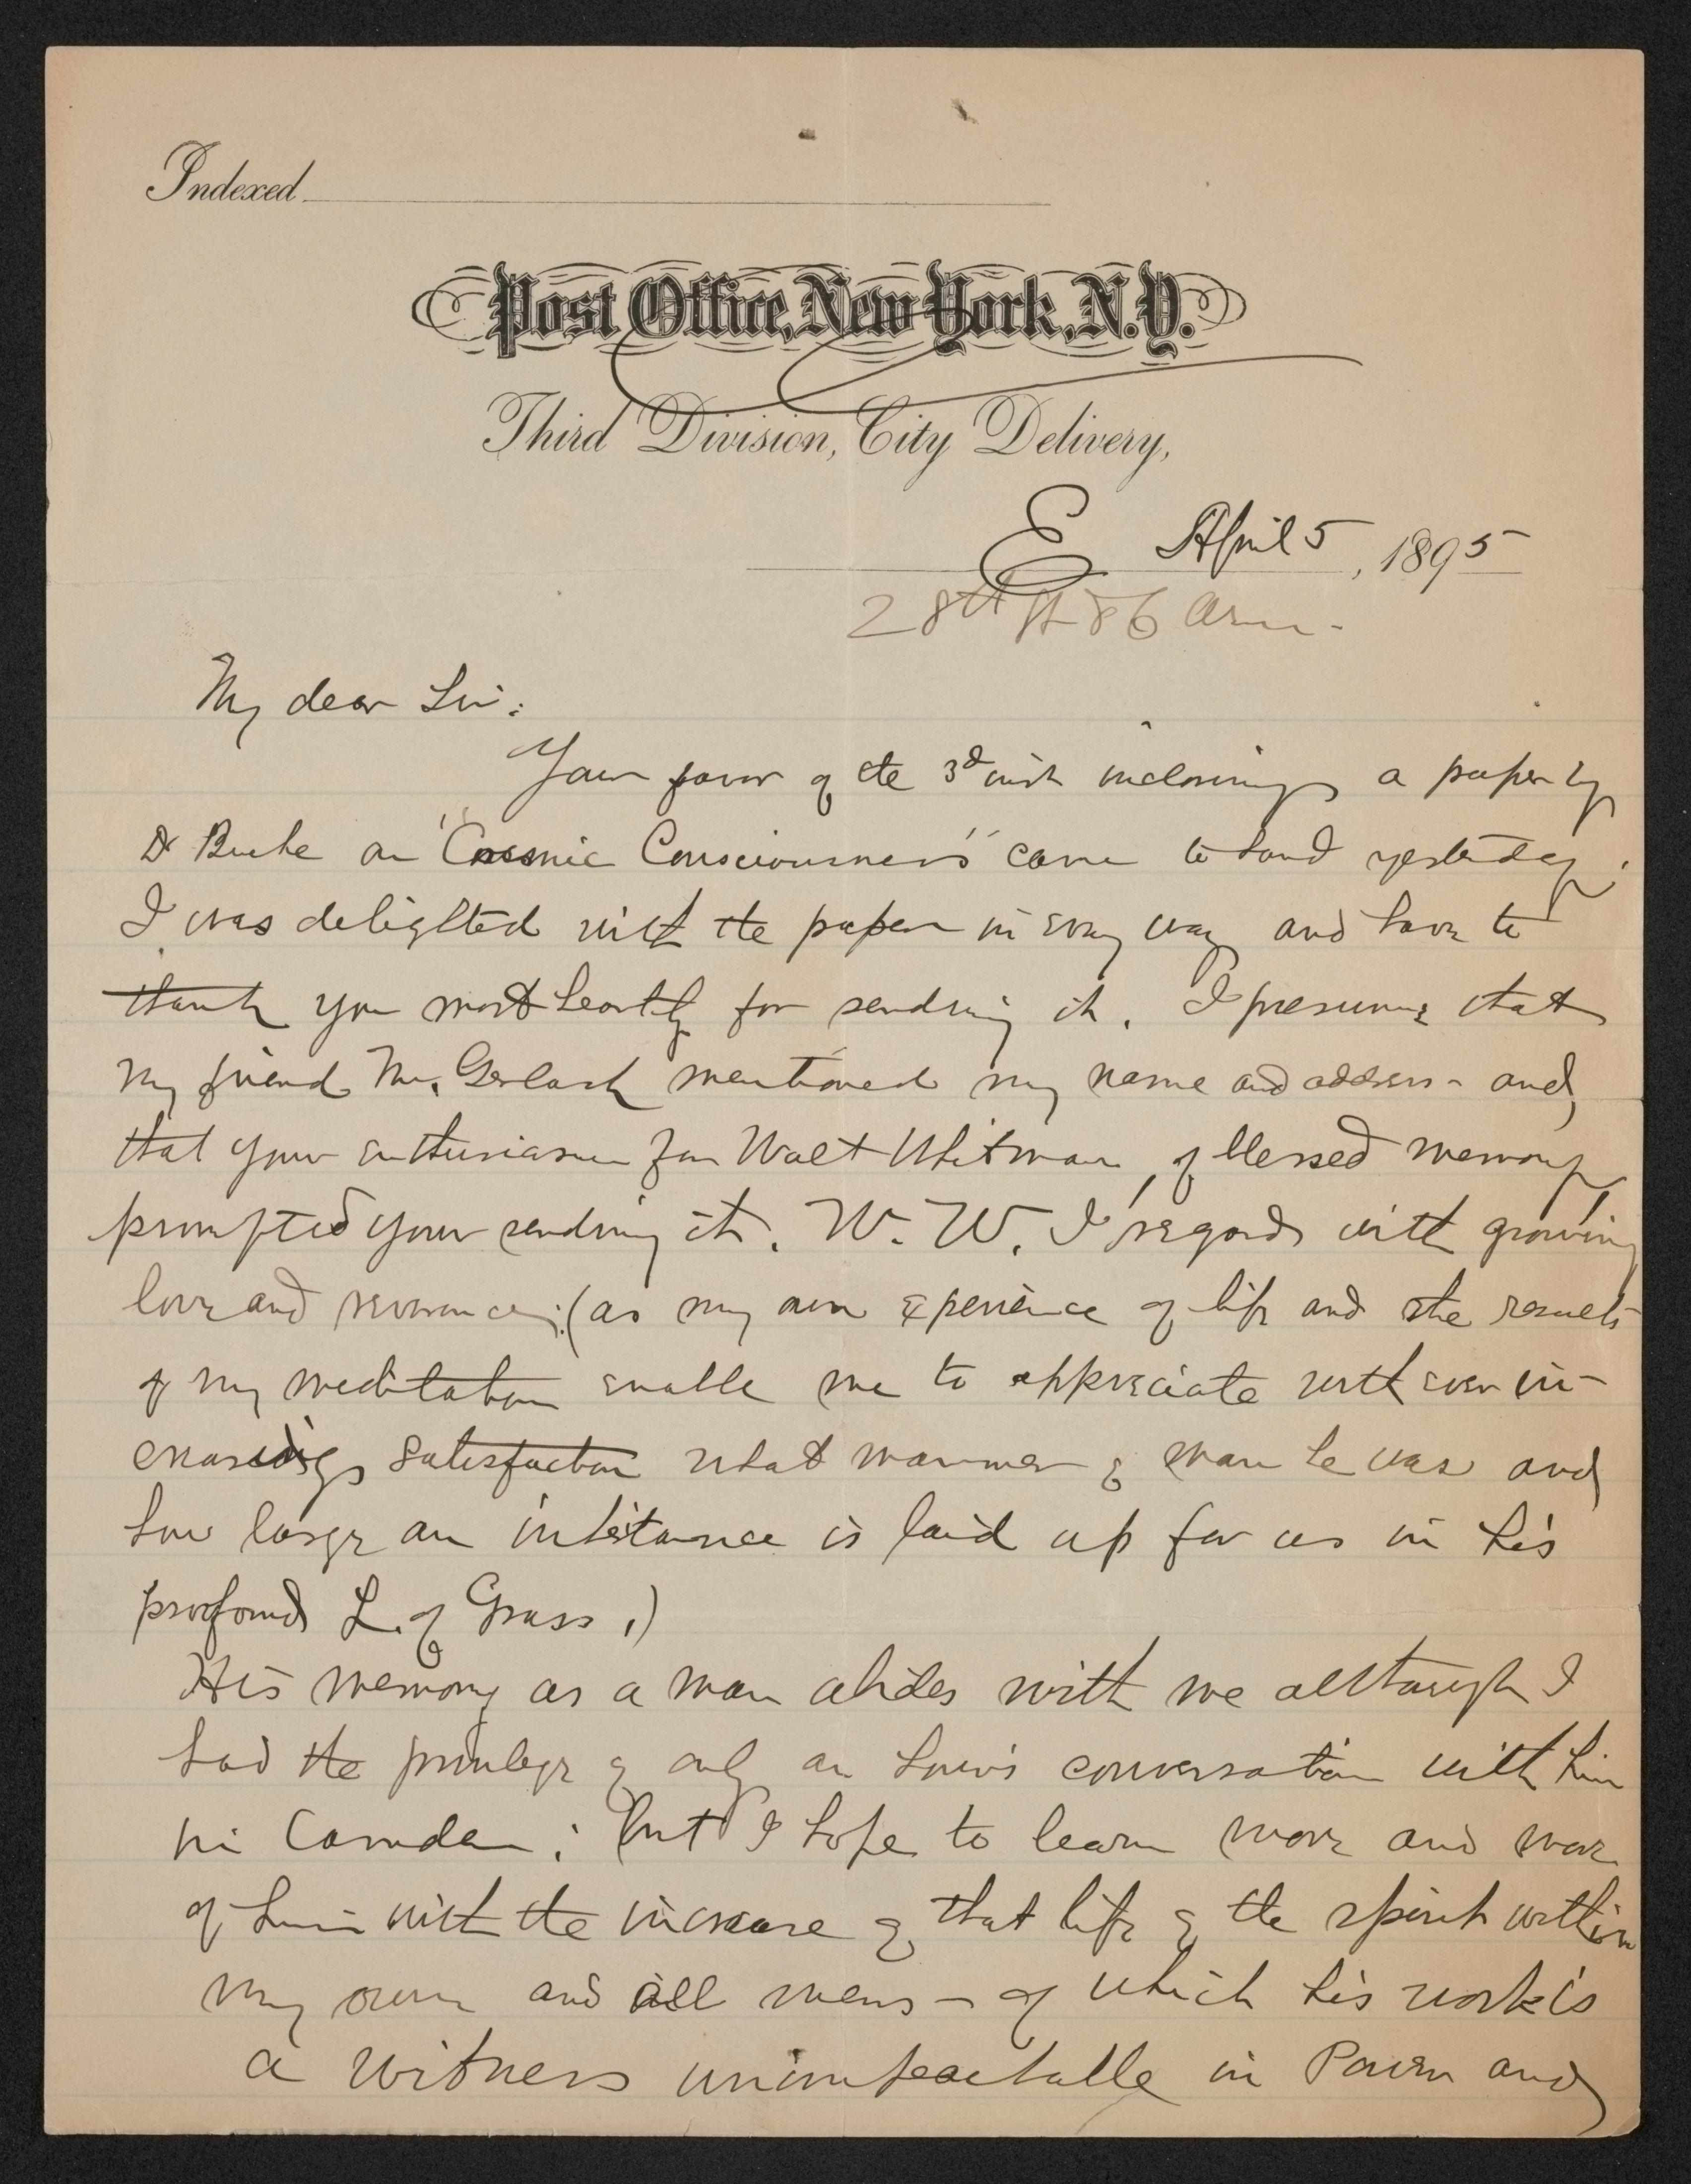 Indexed
Post Office, New York, N.Y.
Third Division, City Delivery,
E April 5, 1895
28th St 86
My dear Sir:
Your favor of the 3d inst inclosing a paper by
Dr Bucke on "Cosmic Consciousness" came to hand yesterday.
I was delighted with the paper in every way and have to
thank you most heartily for sending it. I presume that
my friend Mr. Gerlach mentioned my name and address - and
that your enthusiasm for Walt Whitman, of blessed memory,
prompted your sending it. W. W. I regard with growing
love and reverence; (as my own experience of life and the results
of my meditation enable me to appreciate with ever in-
creasing satisfaction what manner of man he was and
how large an inheritance is laid up for us in his
profound L. of Grass.)
His memory as a man abides with me although I
had the privilege of only an hour's conversation with him
in Camden; but I hope to learn more and more
of him with the increase of that life of the spirit within
my own and all mens - of which his work is
a witness unimpeachable in Power and